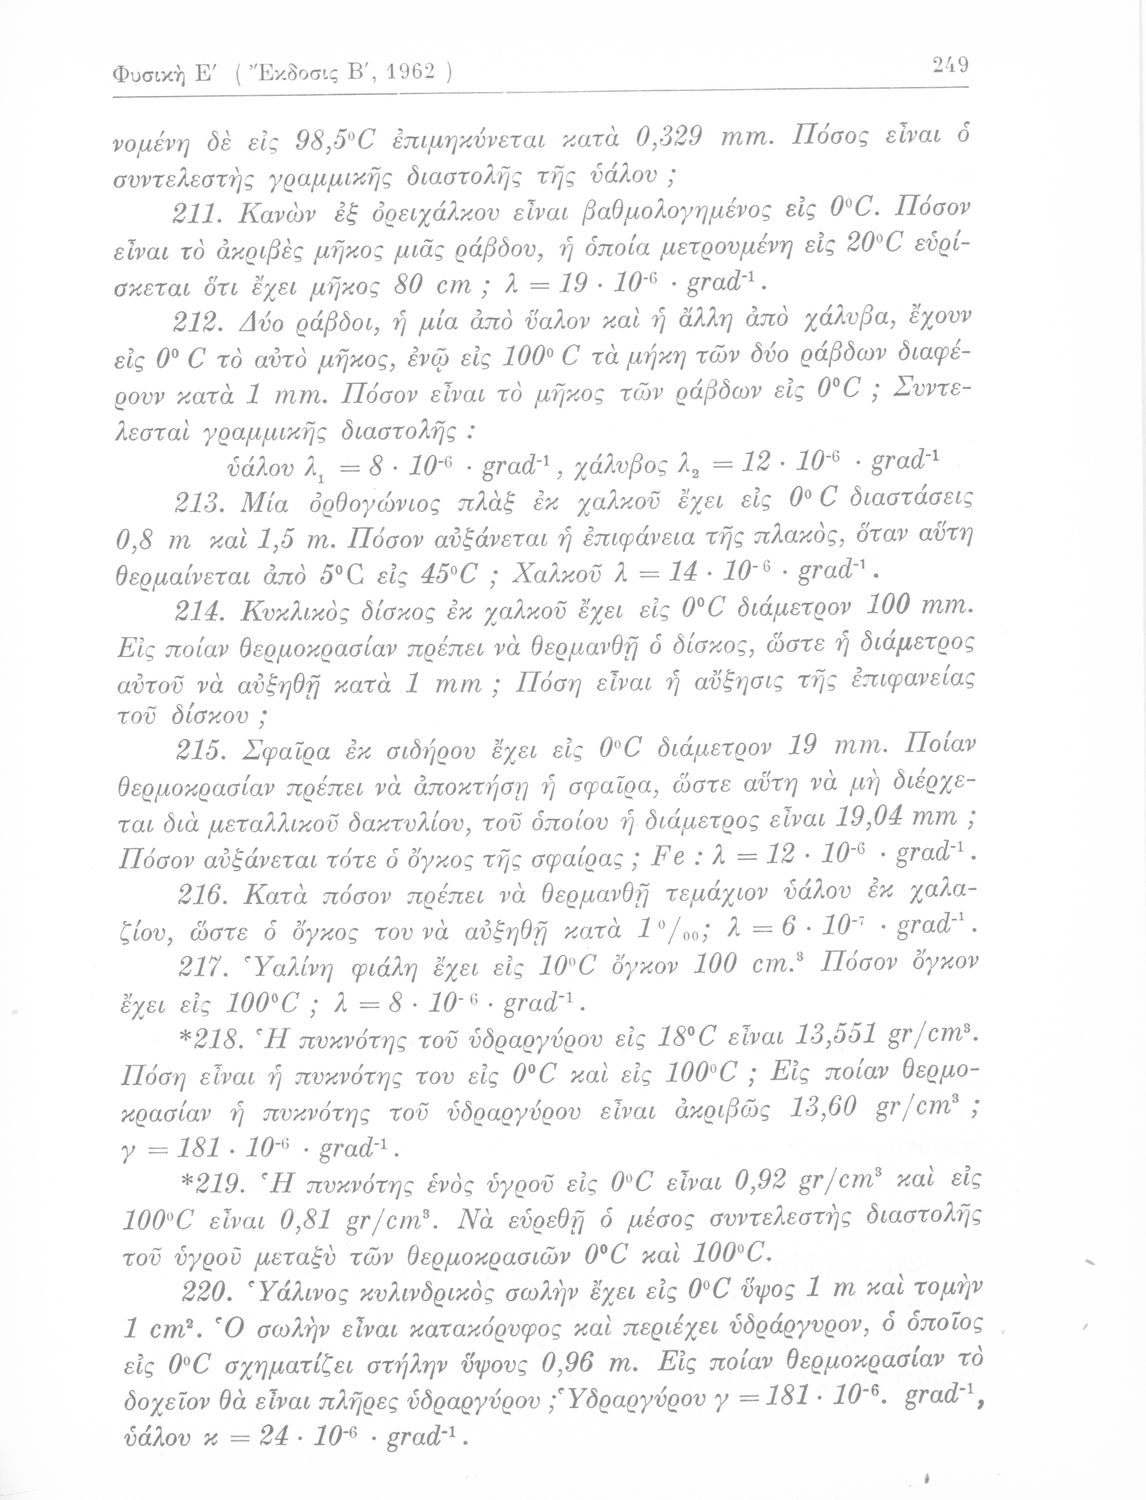 Φυσικὴ Ε′ ( Ἔκδοσις Β′, 1962 )
249
νομένη δὲ εἰς 98,5°C ἐπιμηκύνεται κατὰ 0,329 mm. Πόσος εἶναι ὁ
συντελεστὴς γραμμικῆς διαστολῆς τῆς ὑάλου ;
211. Κανὼν ἐξ ὀρειχάλκου εἶναι βαθμολογημένος εἰς 0°C. Πόσον
εἶναι τὸ ἀκριβὲς μῆκος μιᾶς ράβδου, ἡ ὁποία μετρουμένη εἰς 20°C εὑρί-
σκεται ὅτι ἔχει μῆκος 80 cm ; λ = 19 · 10⁻⁶ · grad⁻¹.
212. Δύο ράβδοι, ἡ μία ἀπὸ ὕαλον καὶ ἡ ἄλλη ἀπὸ χάλυβα, ἔχουν
εἰς 0° C τὸ αὐτὸ μῆκος, ἐνῷ εἰς 100° C τὰ μήκη τῶν δύο ράβδων διαφέ-
ρουν κατὰ 1 mm. Πόσον εἶναι τὸ μῆκος τῶν ράβδων εἰς 0°C ; Συντε-
λεσταὶ γραμμικῆς διαστολῆς :
ὑάλου λ₁ = 8 · 10⁻⁶ · grad⁻¹, χάλυβος λ₂ = 12 · 10⁻⁶ · grad⁻¹
213. Μία ὀρθογώνιος πλὰξ ἐκ χαλκοῦ ἔχει εἰς 0° C διαστάσεις
0,8 m καὶ 1,5 m. Πόσον αὐξάνεται ἡ ἐπιφάνεια τῆς πλακὸς, ὅταν αὕτη
θερμαίνεται ἀπὸ 5°C εἰς 45°C ; Χαλκοῦ λ = 14 · 10⁻⁶ · grad⁻¹.
214. Κυκλικὸς δίσκος ἐκ χαλκοῦ ἔχει εἰς 0°C διάμετρον 100 mm.
Εἰς ποίαν θερμοκρασίαν πρέπει νὰ θερμανθῇ ὁ δίσκος, ὥστε ἡ διάμετρος
αὐτοῦ νὰ αὐξηθῇ κατὰ 1 mm ; Πόση εἶναι ἡ αὔξησις τῆς ἐπιφανείας
τοῦ δίσκου ;
215. Σφαῖρα ἐκ σιδήρου ἔχει εἰς 0°C διάμετρον 19 mm. Ποίαν
θερμοκρασίαν πρέπει νὰ ἀποκτήσῃ ἡ σφαῖρα, ὥστε αὕτη νὰ μὴ διέρχε-
ται διὰ μεταλλικοῦ δακτυλίου, τοῦ ὁποίου ἡ διάμετρος εἶναι 19,04 mm ;
Πόσον αὐξάνεται τότε ὁ ὄγκος τῆς σφαίρας ; Fe : λ = 12 · 10⁻⁶ · grad⁻¹.
216. Κατὰ πόσον πρέπει νὰ θερμανθῇ τεμάχιον ὑάλου ἐκ χαλα-
ζίου, ὥστε ὁ ὄγκος του νὰ αὐξηθῇ κατὰ 1⁰/₀₀; λ = 6 · 10⁻⁷ · grad⁻¹.
217. Ὑαλίνη φιάλη ἔχει εἰς 10°C ὄγκον 100 cm.³ Πόσον ὄγκον
ἔχει εἰς 100°C ; λ = 8 · 10⁻⁶ · grad⁻¹.
*218. Ἡ πυκνότης τοῦ ὑδραργύρου εἰς 18°C εἶναι 13,551 gr/cm³.
Πόση εἶναι ἡ πυκνότης του εἰς 0°C καὶ εἰς 100°C ; Εἰς ποίαν θερμο-
κρασίαν ἡ πυκνότης τοῦ ὑδραργύρου εἶναι ἀκριβῶς 13,60 gr/cm³ ;
γ = 181 · 10⁻⁶ · grad⁻¹.
*219. Ἡ πυκνότης ἑνὸς ὑγροῦ εἰς 0°C εἶναι 0,92 gr/cm³ καὶ εἰς
100°C εἶναι 0,81 gr/cm³. Νὰ εὑρεθῇ ὁ μέσος συντελεστὴς διαστολῆς
τοῦ ὑγροῦ μεταξὺ τῶν θερμοκρασιῶν 0°C καὶ 100°C.
220. Ὑάλινος κυλινδρικὸς σωλὴν ἔχει εἰς 0°C ὕψος 1 m καὶ τομὴν
1 cm². Ὁ σωλὴν εἶναι κατακόρυφος καὶ περιέχει ὑδράργυρον, ὁ ὁποῖος
εἰς 0°C σχηματίζει στήλην ὕψους 0,96 m. Εἰς ποίαν θερμοκρασίαν τὸ
δοχεῖον θὰ εἶναι πλῆρες ὑδραργύρου ; Ὑδραργύρου γ = 181 · 10⁻⁶. grad⁻¹,
ὑάλου κ = 24 · 10⁻⁶ · grad⁻¹.